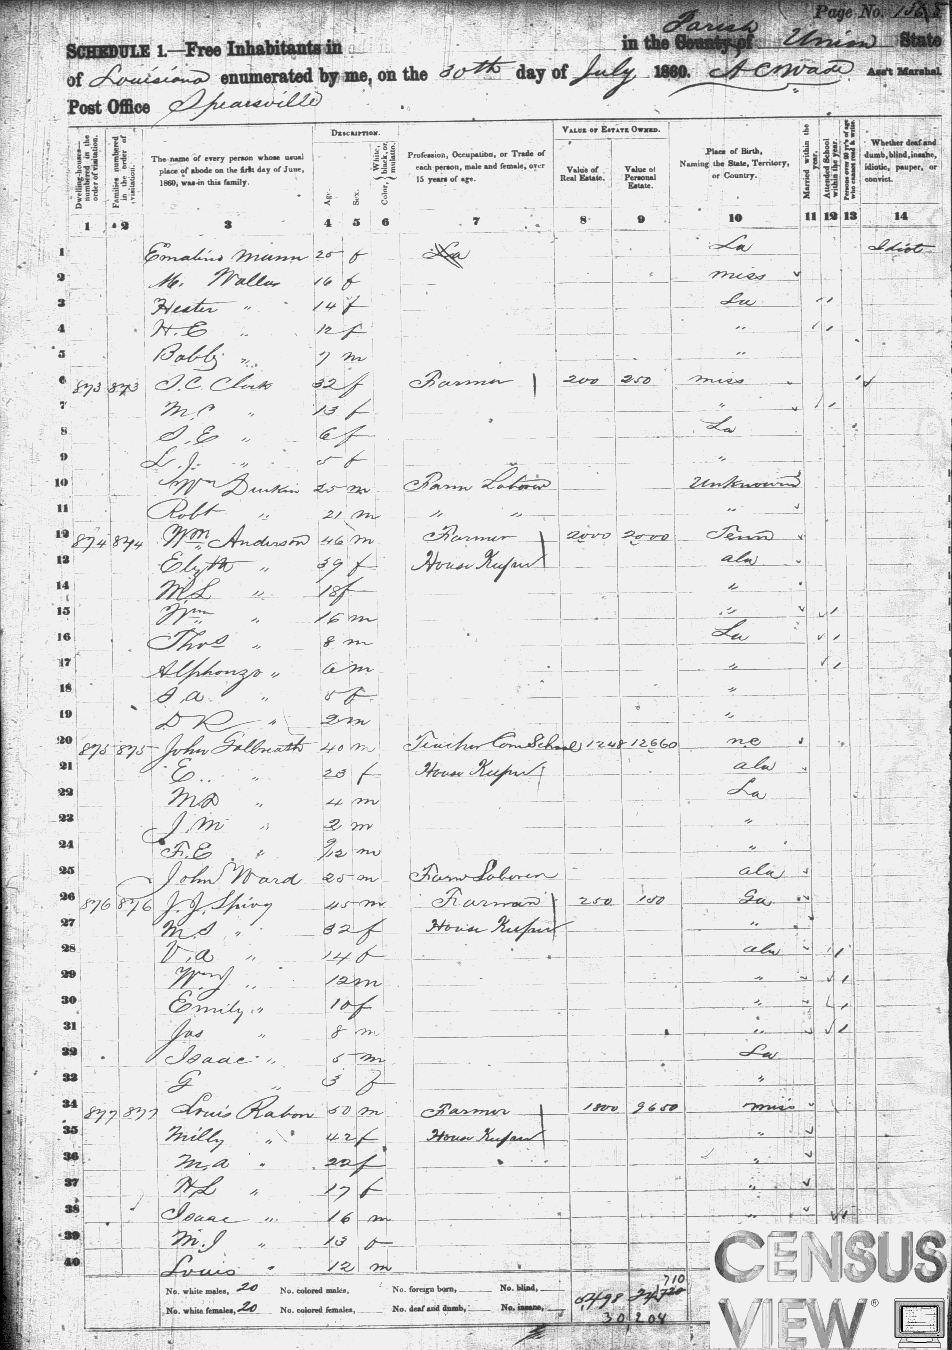 Page No. 156
SCHEDULE 1.—Free Inhabitants in in the County of Parish Union State
of Louisiana enumerated by me, on the 30th day of July 1860. A C Wade Ass't Marshal.
Post Office Spearsville
Dwelling-houses—numbered in the order of visitation.
Families numbered in the order of visitation.
The name of every person whose usual place of abode on the first day of June, 1860, was in this family.
DESCRIPTION.
Age.
Sex.
Color, { White, black, or mulatto.
Profession, Occupation, or Trade of each person, male and female, over 15 years of age.
VALUE OF ESTATE OWNED.
Value of Real Estate.
Value of Personal Estate.
Place of Birth, Naming the State, Territory, or Country.
Married within the year.
Attended School within the year.
Persons over 20 y'rs of age who cannot read & write.
Whether deaf and dumb, blind, insane, idiotic, pauper, or convict.
1 2 3 4 5 6 7 8 9 10 11 12 13 14
1 Emaline Mann 25 f La La Idiot
2 M. Wallas 16 f miss
3 Hester " 14 f La
4 H. E " 12 f "
5 Bobby " 7 m "
6 873 873 S. C. Clark 32 f Farmer 200 250 miss
7 M. C " 13 f "
8 S. E " 6 f La
9 L. J. " 5 f "
10 Wm Durkin 25 m Farm Laborer Unknown
11 Robt " 21 m " " "
12 874 874 Wm Anderson 46 m Farmer 2000 2000 Tenn
13 " 39 f House Keeper ala
14 M. L " 18 f "
15 Wm " 16 m "
16 Thos " 8 m La
17 Alphonzo " 6 m "
18 S a " 5 f "
19 D R " 2 m "
20 875 875 John Galbreath 40 m Teacher Com School 1248 12660 nc
21 E. " 23 f House Keeper ala
22 M D " 4 m La
23 J. M " 2 m "
24 F. E " 9/12 m "
25 John Ward 25 m Farm Laborer ala
26 876 876 J. J. Spivy 45 m Farman 250 150 Ga
27 M S " 32 f House Keeper "
28 V. a " 14 f ala
29 Wm J " 12 m "
30 Emily " 10 f "
31 Jas " 8 m "
32 Isaac " 5 m La
33 G " 3 f "
34 877 877 Louis Rabon 50 m Farmer 1800 9650 miss
35 Milly " 42 f House Keeper "
36 M. a " 22 f "
37 H L " 17 f "
38 Isaac " 16 m "
39 M. J " 13 f
40 Louis " 12 m
No. white males, 20 No. colored males, No. foreign born, No. blind,
No. white females, 20 No. colored females, No. deaf and dumb, No. insane,
710
5498
30,204
CENSUS
VIEW®